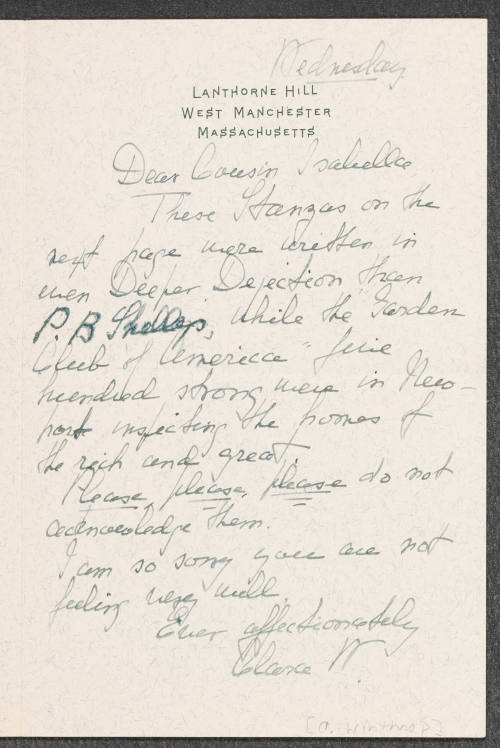 Wednesday
LANTHORNE HILL
WEST MANCHESTER
MASSACHUSETTS
Dear Cousin Isabella,
These Stanzas on the
next page were written in
even Deeper Dejection than
P. B Shelleys, while the "Garden
Club of America" five
hundred strong were in New-
port inspecting the homes of
the rich and great.
Please, please, please do not
acknowledge them.
I am so sorry you are not
feeling very well.
Ever affectionately
Clara W.
[ . Winthrop]